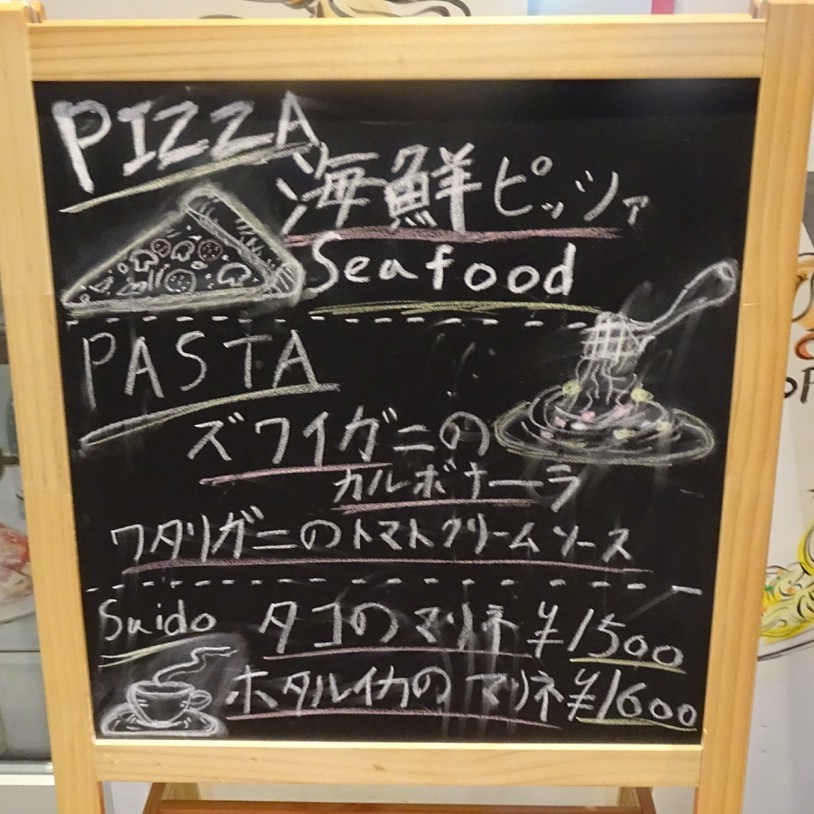 PIZZA
海鮮ピッツァ
Seafood
PASTA
ズワイガニの
カルボナーラ
ワタリガニのトマトクリームソース
Suido タコのマリネ ¥1500
ホタルイカのマリネ ¥1600